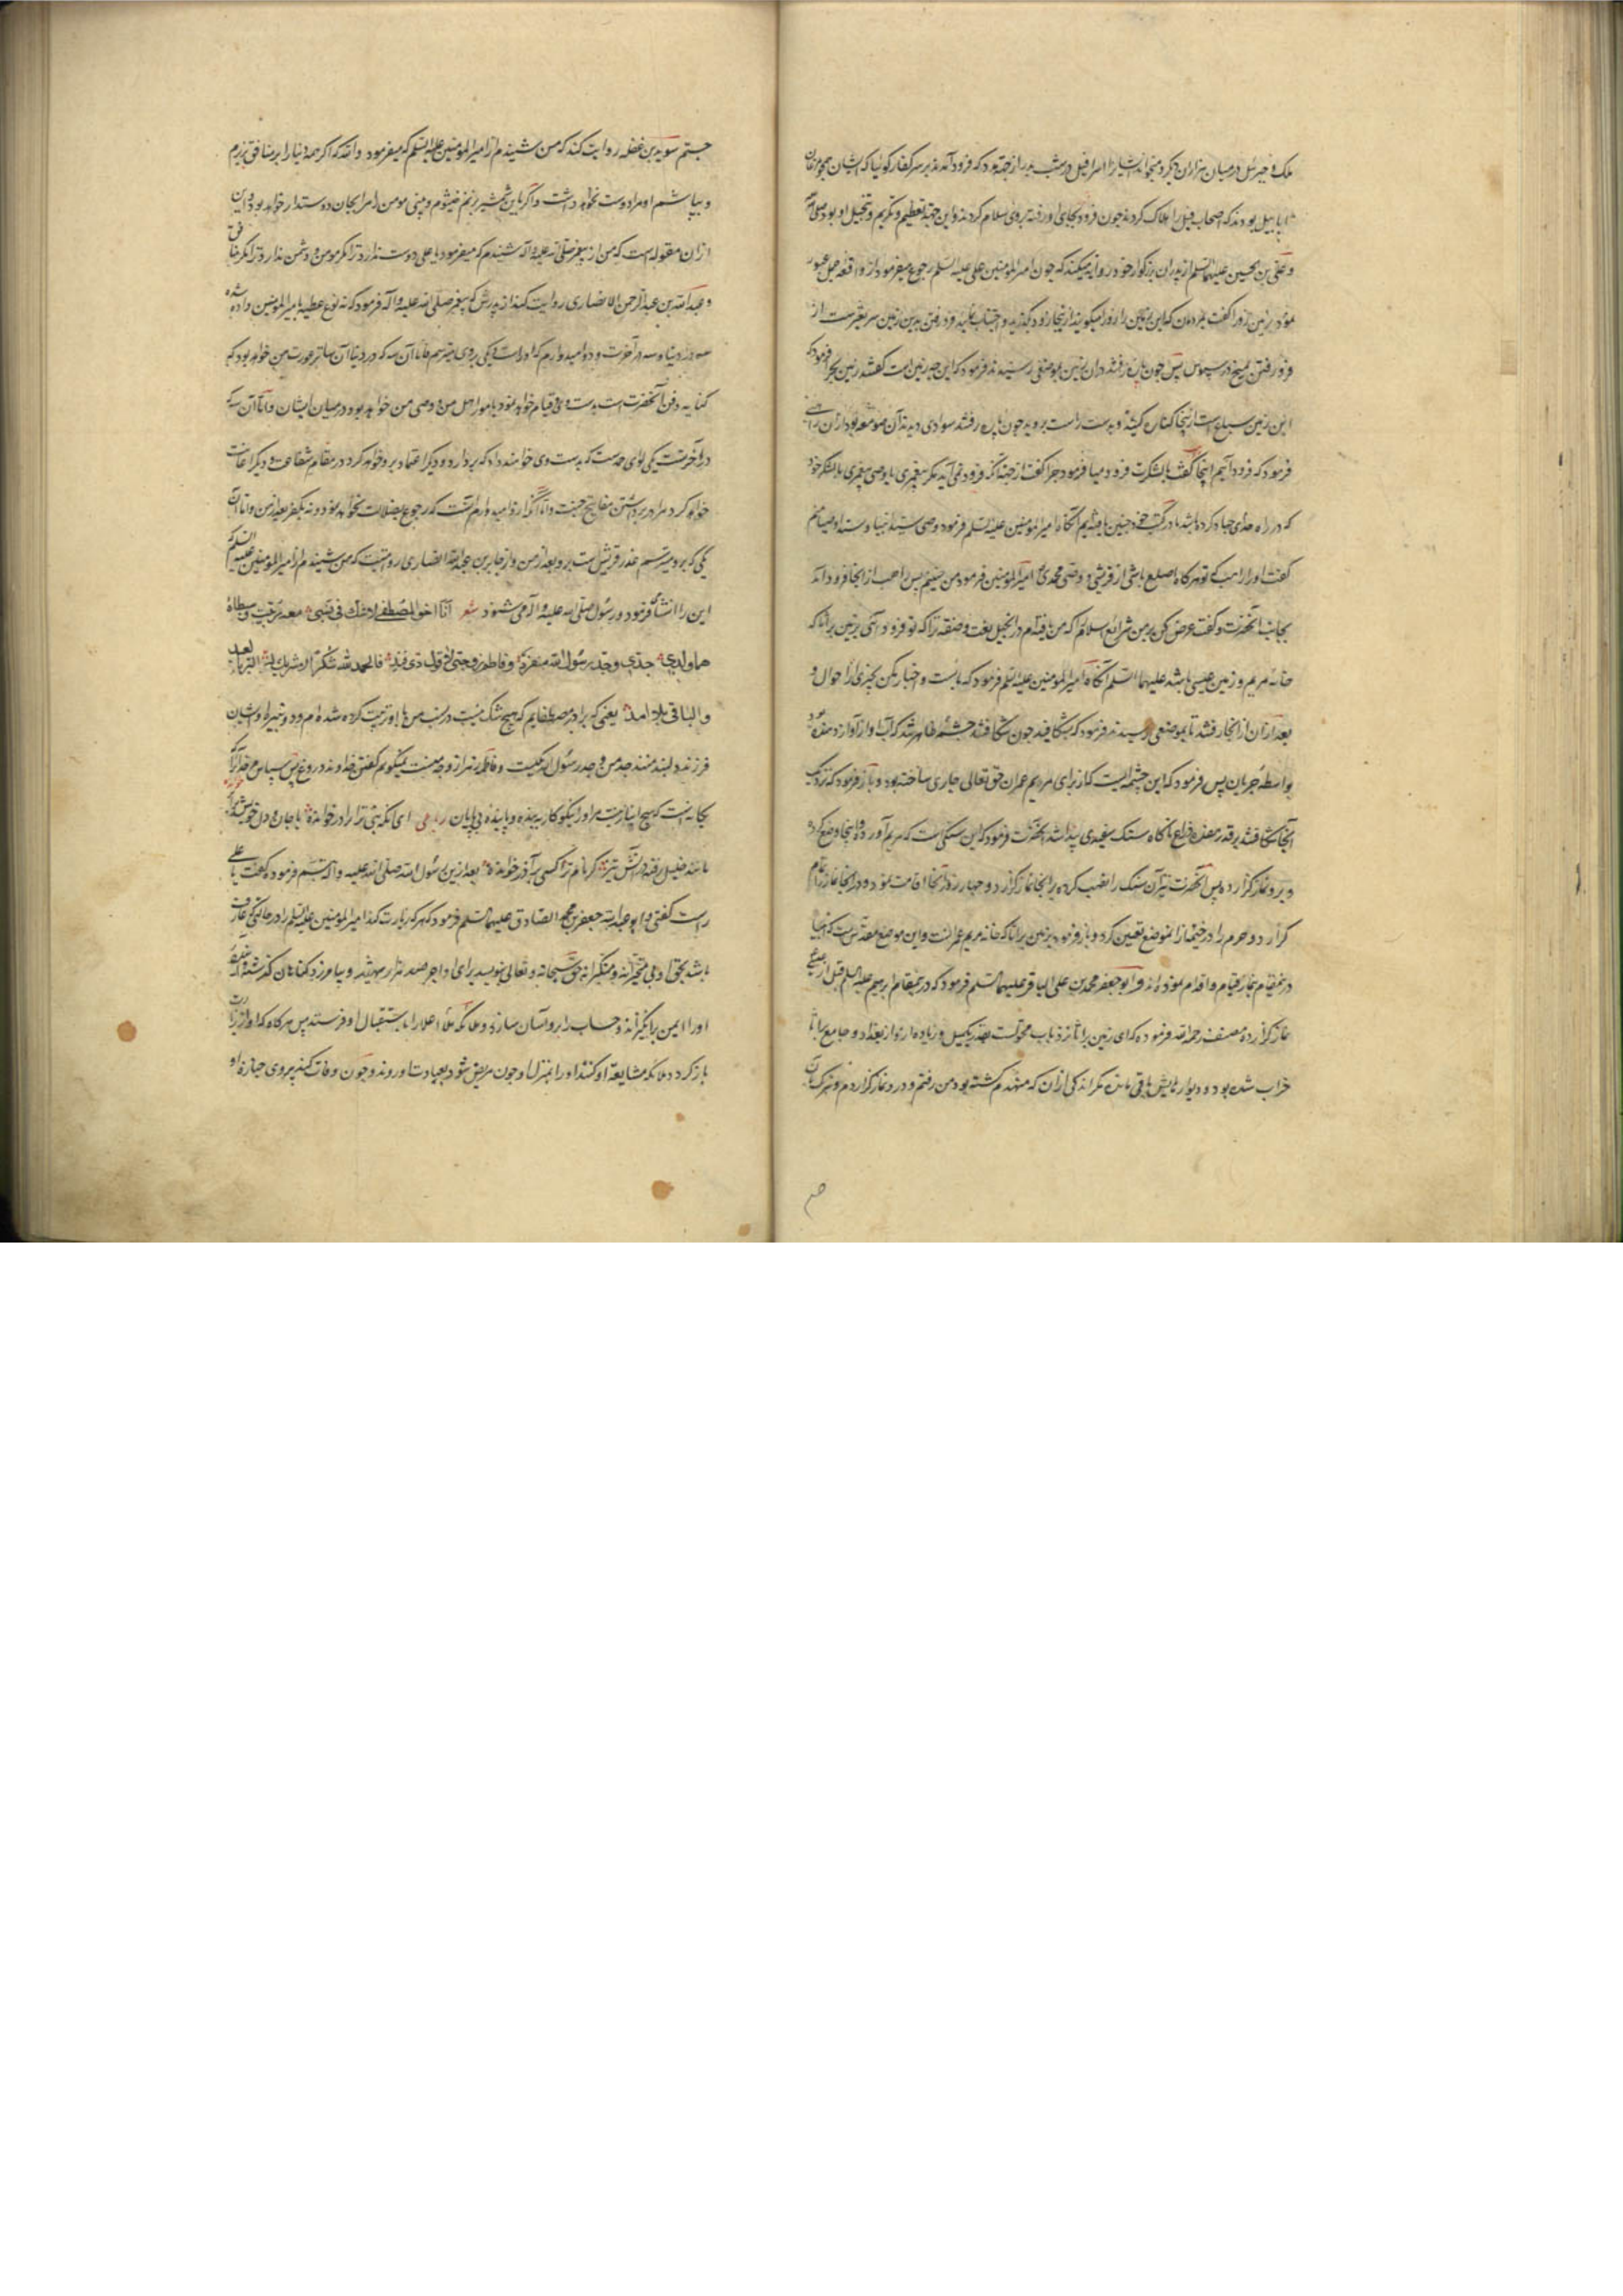 ملک و جبرئیل در میان هزاران دیگر و میخوانند ایشانرا اسرافیل در شب بدر از جهة بود که فرود آمدند بر سر کفار گوئیا که ایشان همچو مرغان
ابابیل بودند که اصحاب فیل را هلاک کردند چون فرود بجای او رفته بروی سلام کردند و این جهة تعظیم و تکریم و تبجیل او بود
و علی بن الحسین علیهما السلم از پدران بزرگوار خود روایه میکند که چون امیر المؤمنین علی علیه السلم رجوع میفرمود از واقعه جمل عبور
نمود بزمین زورا گفت بمردمان که این زمین را زورا میکویند از اینجا زود بگذرید و اجتناب نمائید و فرو رفتن بدین زمین سریعترست از
فرو رفتن میخ در سبوس پس چون پاره رفتند دران زمین بموضعی رسیدند فرمود که این چه زمین است گفتند زمین بحرا فرمود که
این زمین سباخ است ازینجا کناره کنید و بدست راست بروید چون پاره رفتند سوادی دیدند آن صومعه بود ازان راهبی
فرمود که فرود آییم اینجا گفت با لشکرت فرود میا فرمود چرا گفت از جهة آنکه فرود نمی آید مگر پیغمبری یا وصی پیغمبری با لشکر خود
که در راه خدای جهاد کرده باشد ما در کتب خود چنین یافته ایم آنگاه امیر المؤمنین علیه السلم فرمود وصی سید انبیا و سید اوصیا منم
گفت او را راهب که تو هرگاه اصلع باشی از قریش و وصی محمدی امیر المؤمنین فرمود من همینم پس راهب از انجا فرود آمد
بجانب آنحضرت و گفت عرض کن بر من شرایع اسلام که من یافته ام در انجیل نعت و صفة ترا که تو فرود آئی بزمین براثا که
خانه مریم و زمین عیسی باشد علیهما السلم آنگاه امیر المؤمنین علیه السلم فرمود که بایست و اخبار مکن بچیزی از احوال و
بعد ازان از انجا رفتند تا بموضعی رسیدند فرمود که بشکافید چون شکافتند چشمه ظاهر شد که آب او از آواز دهنده بود
بواسطه جریان پس فرمود که این چشمه ایست که از برای مریم عمران حق تعالی جاری ساخته بود و باز فرمود که نزدیک
آنجا شکافتند بر قدر هفده ذراع ناگاه سنگ سفیدی پیدا شد آنحضرت فرمود که این سنگی است که مریم آورده و اینجا وضع کرده
و برو نماز گزارده پس آنحضرت نیز آن سنگ را نصب کرده بر آنجا نماز گزارد و چهار روز آنجا اقامت نمود و در انجا نماز را تمام
گزارد و حرم را در خیمه ازان موضع تعیین کرد و باز فرمود بزمین براثا که خانه مریم عمرانست و این موضع مقدس است که انبیا
درین مقام بنماز قیام و اقدام نموده اند و ابو جعفر محمد بن علی الباقر علیهما السلم فرمود که درین مقام ابرهیم علیه السلم قبل از عیسی
نماز گزارده مصنف رحمه الله فرموده که ای زمین براثا نزد باب محولست بقدر یک میل و زیاده ازو از بغداد و جامع براثا
خراب شده بود و دیوارهایش باقی مانده مگر اندکی ازان که منهدم گشته بود من رفتم و درو نماز گزاردم و تبرک بآن
جستم سوید بن غفله روایت کند که من شنیدم از امیر المؤمنین علیه السلم که میفرمود والله که اگر همه دنیا را بر منافق بریزم
و بپاشم او مرا دوست نخواهد داشت و اگر باین شمشیر بزنم خیشوم و بینی مومن را مرا بجان دوستدار خواهد بود و این
ازان مقوله است که من از پیغمبر صلی الله علیه و آله شنیدم که میفرمود یا علی دوست ندارد ترا مگر مومن و دشمن ندارد ترا مگر منافق
و عبد الله بن عبد الرحمن الانصاری روایت کند از پدرش که پیغمبر صلی الله علیه و آله فرمود که نه نوع عطیه بامیر المؤمنین داده شده
سه در دنیا و سه در آخرت و دو امیدوارم که او راست و یکی بروی میترسم فاما آن سه که در دنیا آن ساتر عورت من خواهد بود که
کنایه دفن آنحضرت است بدست وی و قیام خواهد نمود بامور اهل من و وصی من خواهد بود در میان ایشان و اما آن سه که
در آخرتست یکی لوای حمدست که بدست وی خواهند داد که بردارد و دیگر اعتماد برو خواهم کرد در مقام شفاعت و دیگر اعانت
خواهد کرد مرا در برداشتن مفاتیح جنت و اما آنکه ازو امیدوارم آنست که رجوع بضلالت نخواهد نمود و نه بکفر بعد از من و اما آن
یکی که برو میترسم غدر قریش است برو بعد از من و از جابر بن عبد الله انصاری روایتست که من شنیدم از امیر المؤمنین علیه السلم
این را انشا فرمود و رسول صلی الله علیه و آله می شنود شعر انا اخو المصطفی لا شک فی نسبی معه ربیت و سبطاه
هما ولدی جدی و جد رسول الله منفرد و فاطم زوجتی لا قول ذی فند فالحمد لله شکرا لا شریک له البر بالعبد
والباقی بلا امد یعنی که برادر مصطفایم که هیچ شک نیست در نسب من با او تربیت کرده شده ام و دو نبیره او ایشان
فرزند دلبند منند جد من و جد رسول الله یکیست و فاطمه زهرا زوجه منست نمیگویم گفتن خداوند دروغ پس سپاس مر خدای را
یگانست که هیچ انبازیست مر او را نیکوکار ببنده و پاینده بی پایان رباعی ای آنکه نبی ترا برادر خوانده با جان و دل خویش
مانند خلیل رفته در آتش تیز گر نام ترا کسی بر آذر خوانده بعد ازین رسول الله صلی الله علیه و آله تبسم فرمود و گفت یا علی
راست گفتی و ابو عبد الله جعفر بن محمد الصادق علیهما السلم فرمود که هر که زیارت کند امیر المؤمنین علیه السلم را در حالتی که عارف
باشد بحق او بی متجبرانه و متکبرانه حق سبحانه و تعالی بنویسد برای او اجر صد هزار شهید و بیامرزد گناهان گذشته
او را ایمن برانگیزاند و حساب را برو آسان سازد و ملائکه ملأ اعلا را باستقبال او فرستد پس هرگاه که او از زیارت
باز گردد ملائکه مشایعة او کنند او را بمنزل او چون مریض شود بعیادت او روند و چون وفات کند پیروی جنازه او